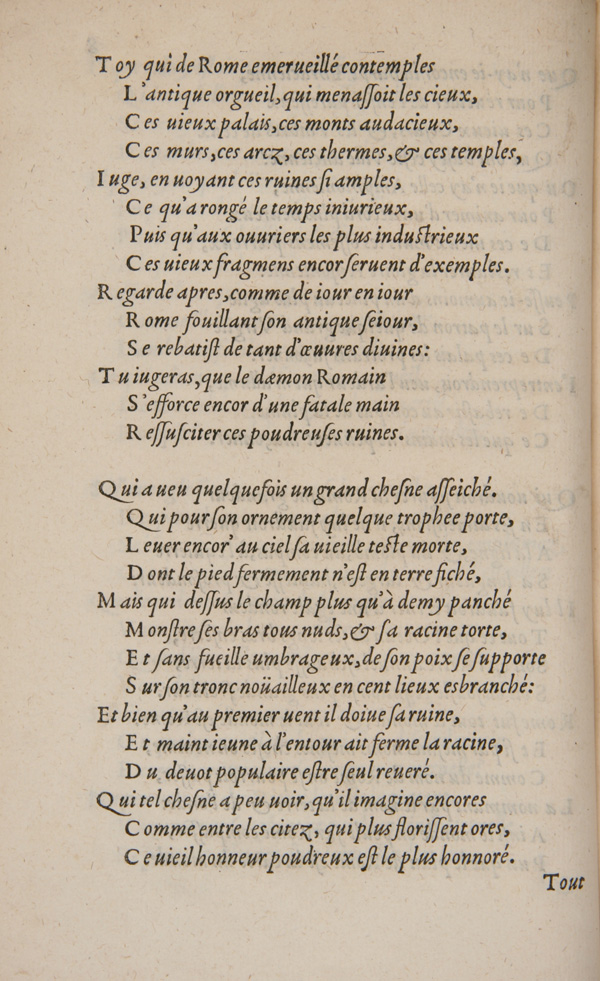 Toy qui de Rome emerueillé contemples
L'antique orgueil, qui menaſſoit les cieux,
Ces uieux palais, ces monts audacieux,
Ces murs, ces arcz, ces thermes, & ces temples,
Iuge, en uoyant ces ruines ſi amples,
Ce qu'a rongé le temps iniurieux,
Puis qu'aux ouuriers les plus induſtrieux
Ces uieux fragmens encor ſeruent d'exemples.
Regarde apres, comme de iour en iour
Rome fouillant ſon antique ſeiour,
Se rebatiſt de tant d'œuures diuines:
Tu iugeras, que le dæmon Romain
S'efforce encor d'une fatale main
Reſſuſciter ces poudreuſes ruines.
Qui a ueu quelquefois un grand cheſne aſſeiché.
Qui pour ſon ornement quelque trophee porte,
Leuer encor' au ciel ſa uieille teſte morte,
Dont le pied fermement n'eſt en terre fiché,
Mais qui deſſus le champ plus qu'à demy panché
Monſtre ſes bras tous nuds, & ſa racine torte,
Et ſans fueille umbrageux, de ſon poix ſe ſupporte
Sur ſon tronc noüailleux en cent lieux esbranché:
Et bien qu'au premier uent il doiue ſa ruine,
Et maint ieune à l'entour ait ferme la racine,
Du deuot populaire eſtre ſeul reueré.
Qui tel cheſne a peu uoir, qu'il imagine encores
Comme entre les citez, qui plus floriſſent ores,
Ce uieil honneur poudreux eſt le plus honnoré.
Tout